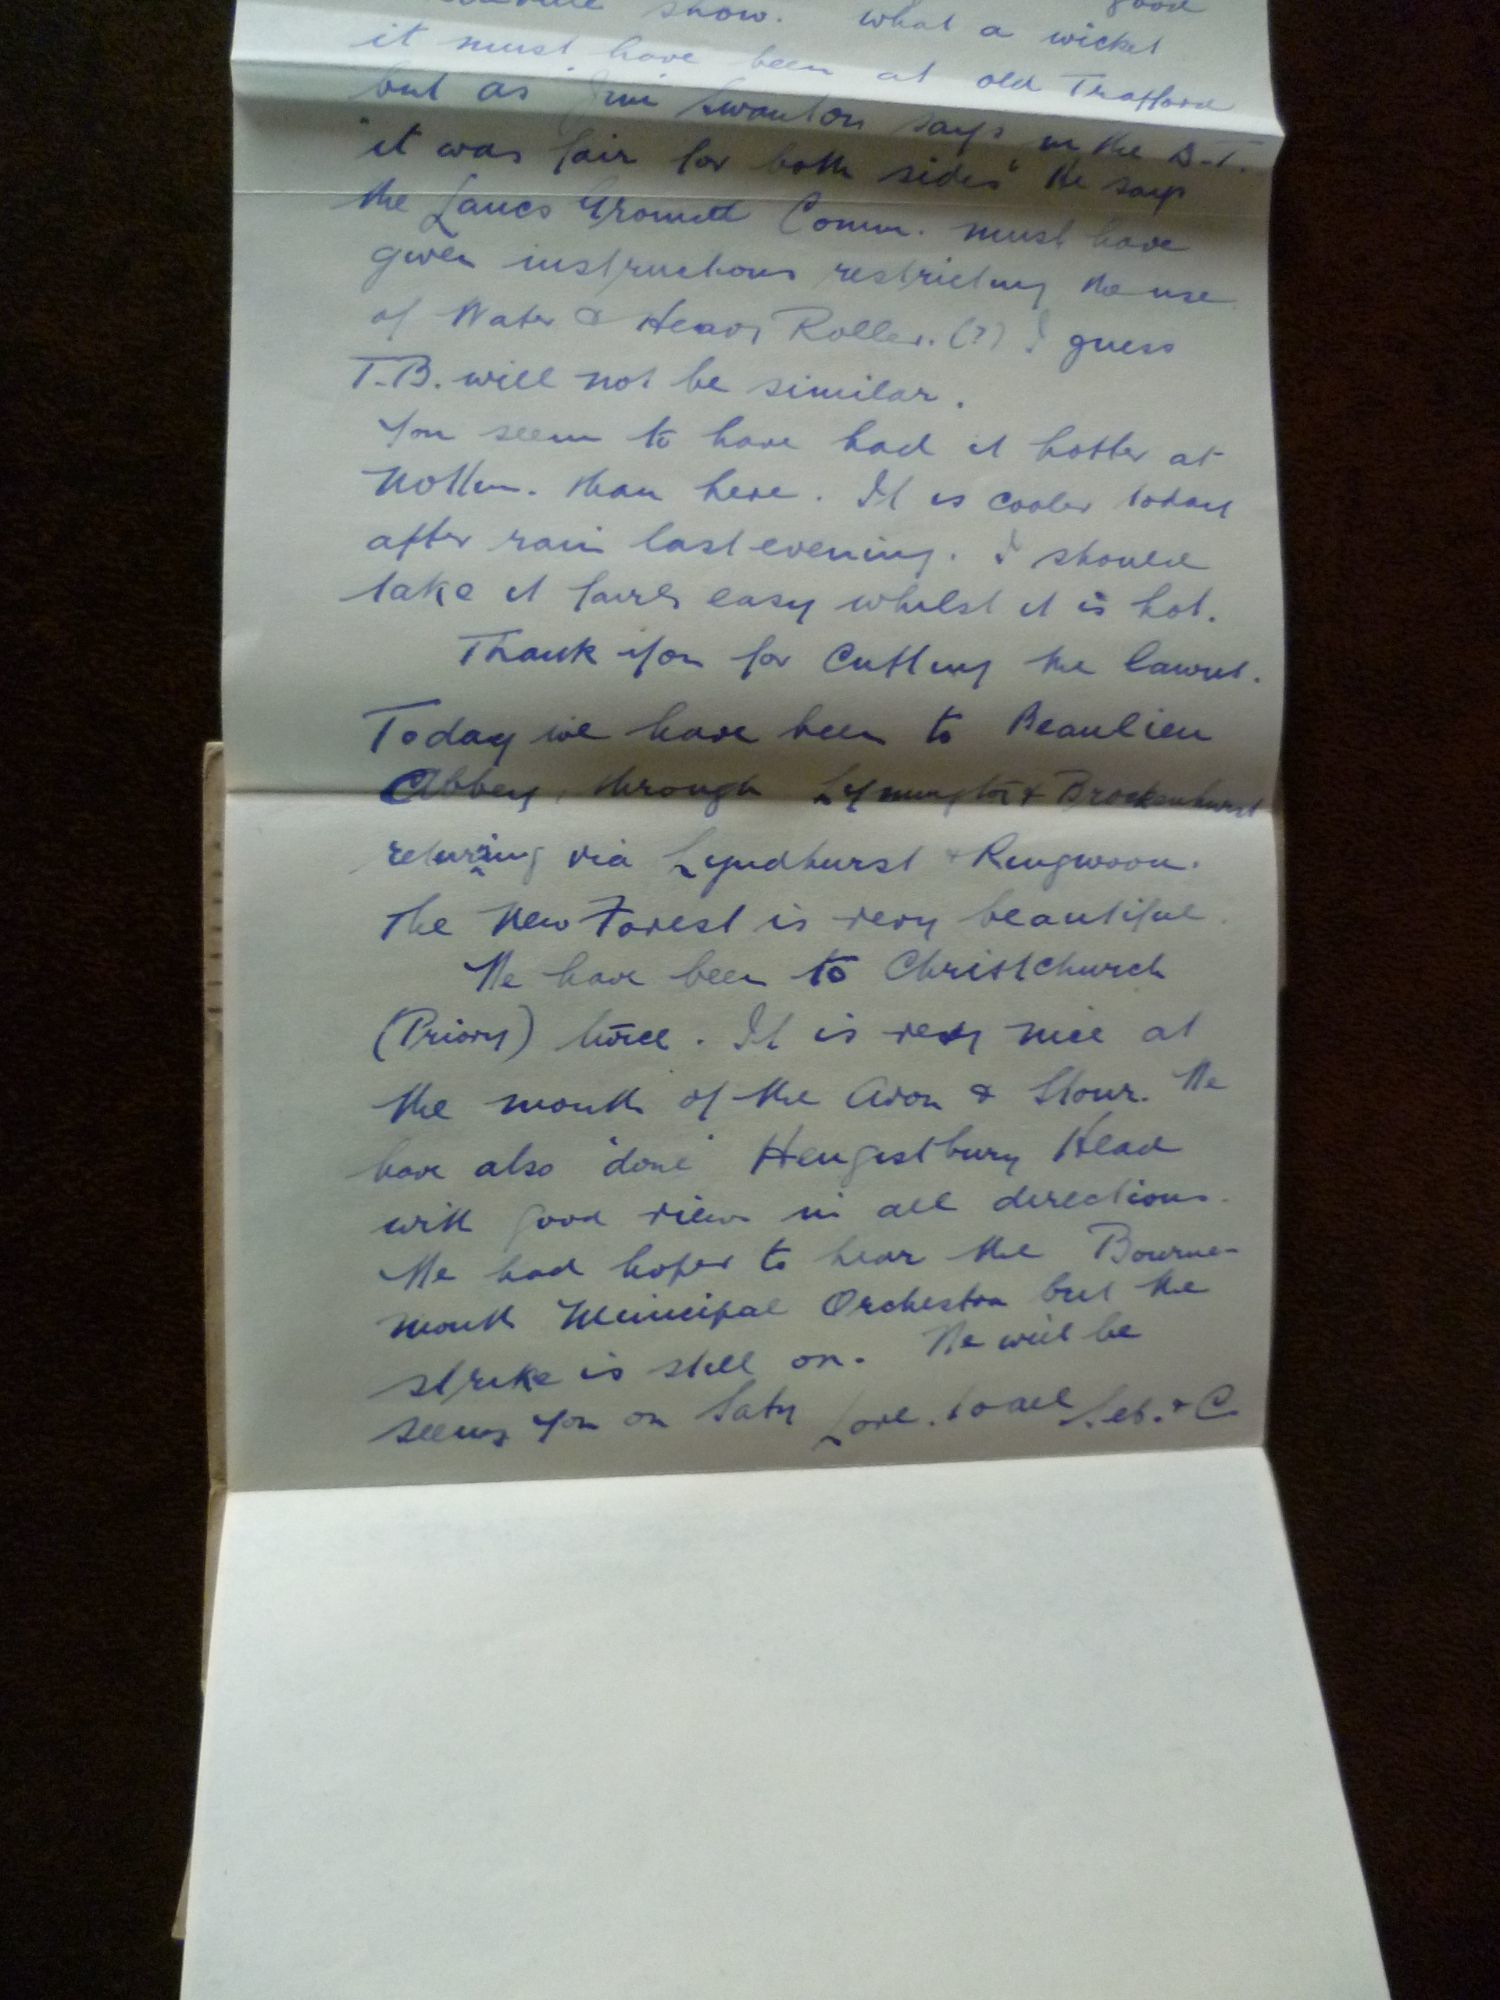 show. what a wicket good
it must have been at old Trafford
but as Jim Swanton says in the D.T.
"it was fair for both sides" He says
the Lancs Ground Comm. must have
given instructions restricting the use
of Water & Heavy Roller. (?) I guess
T.B. will not be similar.
You seem to have had it hotter at
Nottm. than here. It is cooler today
after rain last evening. I should
take it fairly easy whilst it is hot.
Thank you for cutting the lawns.
Today we have been to Beaulieu
Abbey, through Lymington & Brockenhurst
returning via Lyndhurst & Ringwood.
The New Forest is very beautiful.
We have been to Christchurch
(Priory) twice. It is very nice at
the mouth of the Avon & Stour. We
have also 'done' Hengistbury Head
with good views in all directions.
We had hoped to hear the Bourne-
mouth Municipal Orchestra but the
strike is still on. We will be
seeing you on Saty Love to all & C